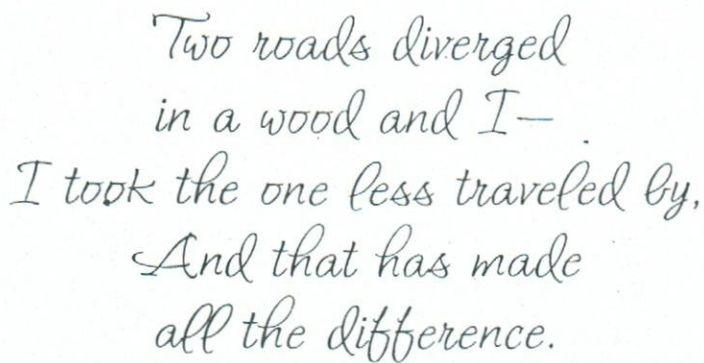 Two roads diverged
in a wood and I—
I took the one less traveled by,
And that has made
all the difference.